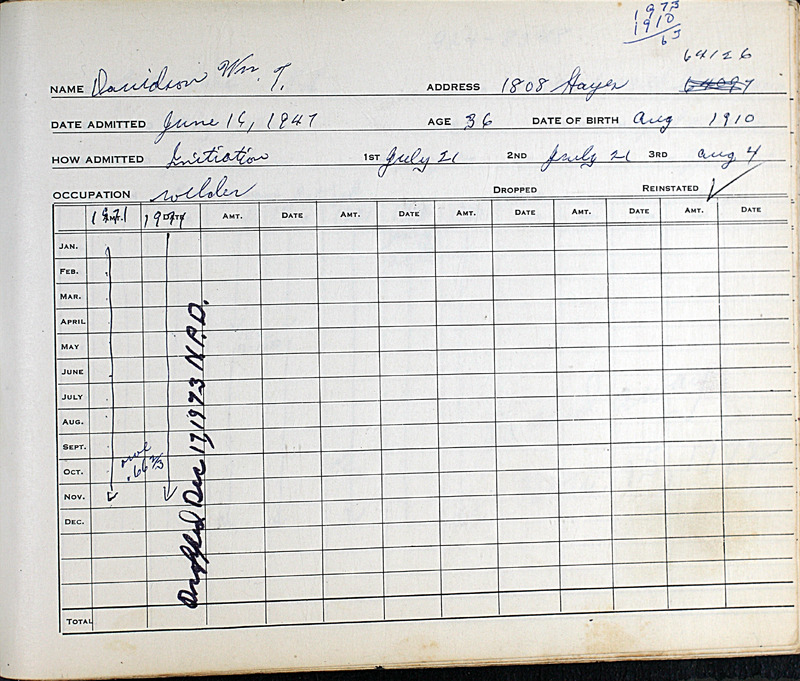 1973
1910
63
64126
NAME Davidson Wm. T. ADDRESS 1808 Hayes
DATE ADMITTED June 16, 1947 AGE 36 DATE OF BIRTH Aug 1910
HOW ADMITTED Initiation 1ST July 21 2ND July 21 3RD Aug 4
OCCUPATION welder DROPPED REINSTATED ✓
1971 AMT. DATE AMT. DATE AMT. DATE AMT. DATE AMT. DATE AMT. DATE
JAN.
FEB.
MAR.
APRIL
MAY
JUNE
JULY
AUG.
SEPT.
OCT. .66 2/3
NOV.
DEC.
TOTAL
Dropped Dec 17, 1973 N.P.D.